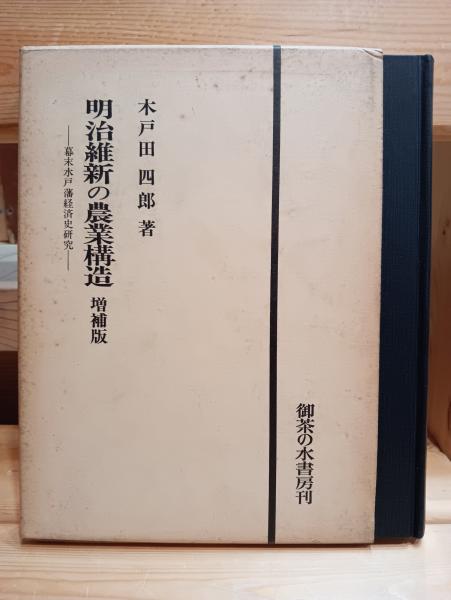 木戸田四郎著
明治維新の農業構造 増補版
――幕末水戸藩経済史研究――
御茶の水書房刊